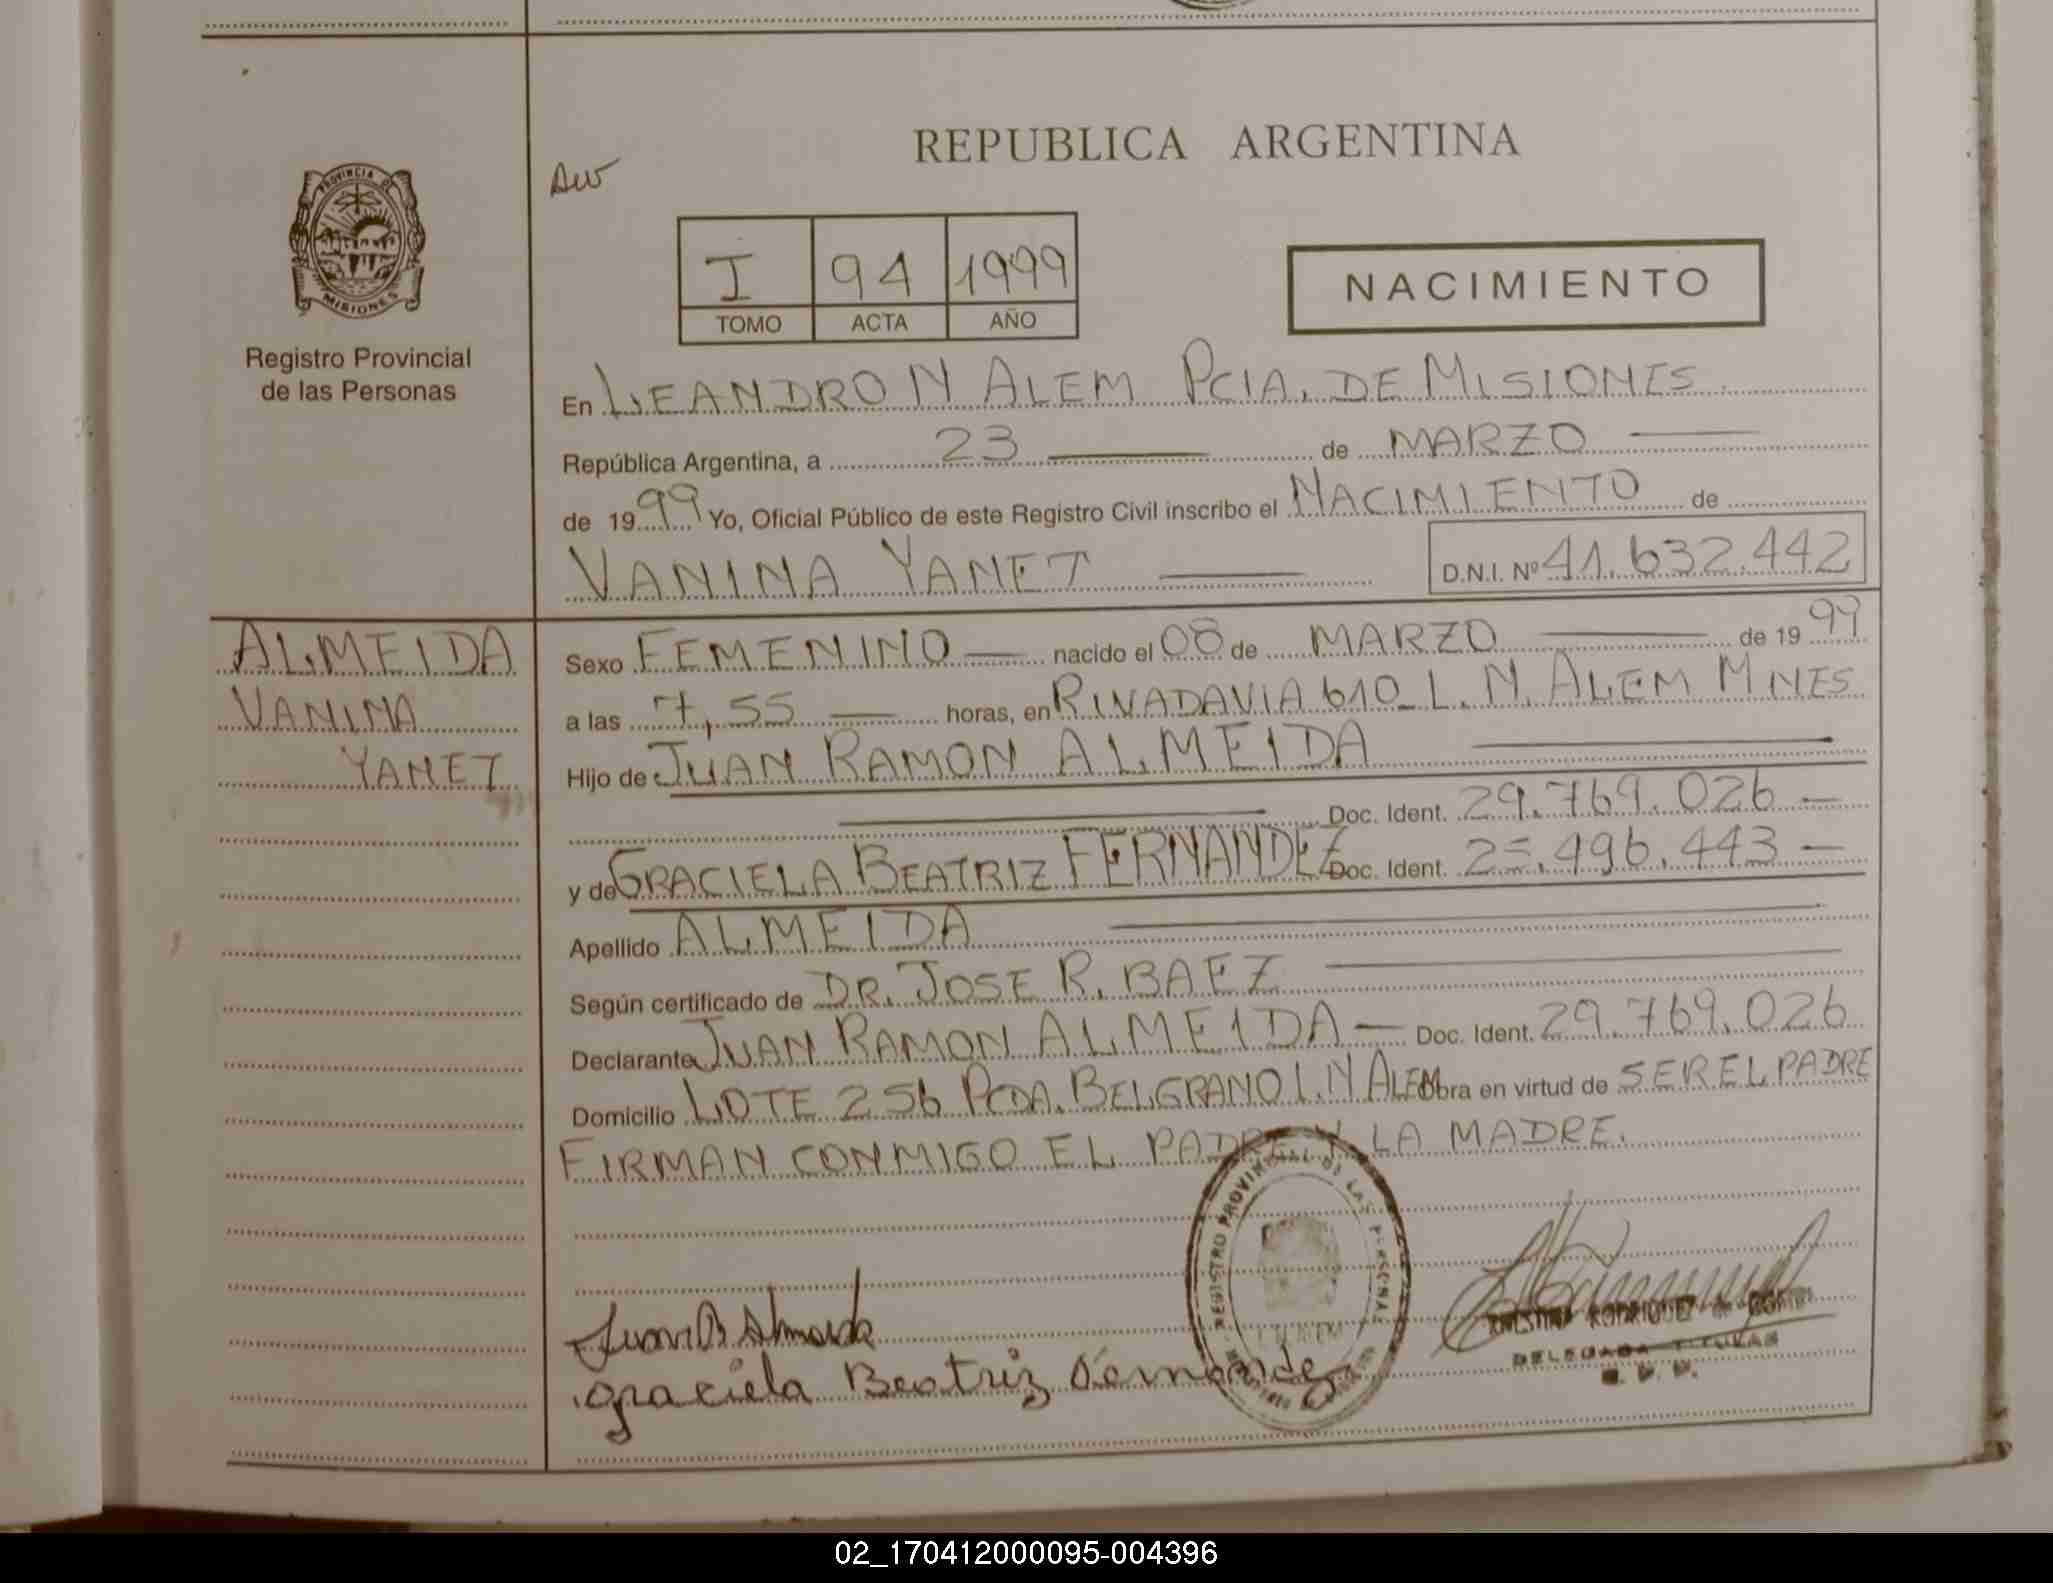 REPUBLICA ARGENTINA
PROVINCIA DE
MISIONES
Registro Provincial
de las Personas
I 94 1999
TOMO ACTA AÑO
NACIMIENTO
En LEANDRO N ALEM PCIA. DE MISIONES.
República Argentina, a 23 de MARZO
de 1999 Yo, Oficial Público de este Registro Civil inscribo el NACIMIENTO de
VANINA YANET D.N.I. Nº 41.632.442
ALMEIDA
VANINA
YANET
Sexo FEMENINO nacido el 08 de MARZO de 1999
a las 7,55 horas, en RIVADAVIA 610 L. N. ALEM MNES
Hijo de JUAN RAMON ALMEIDA
Doc. Ident. 29.769.026
y de GRACIELA BEATRIZ FERNANDEZ Doc. Ident. 25.496.443
Apellido ALMEIDA
Según certificado de DR. JOSE R. BAEZ
Declarante JUAN RAMON ALMEIDA Doc. Ident. 29.769.026
Domicilio LOTE 256 PCDA. BELGRANO L.N ALEM Obra en virtud de SER EL PADRE
FIRMAN CONMIGO EL PADRE Y LA MADRE.
REGISTRO PROVINCIAL DE LAS PERSONAS
Juan R Almeida
Graciela Beatriz Fernandez
RODRIGUEZ de
DELEGADA TITULAR
02_170412000095-004396